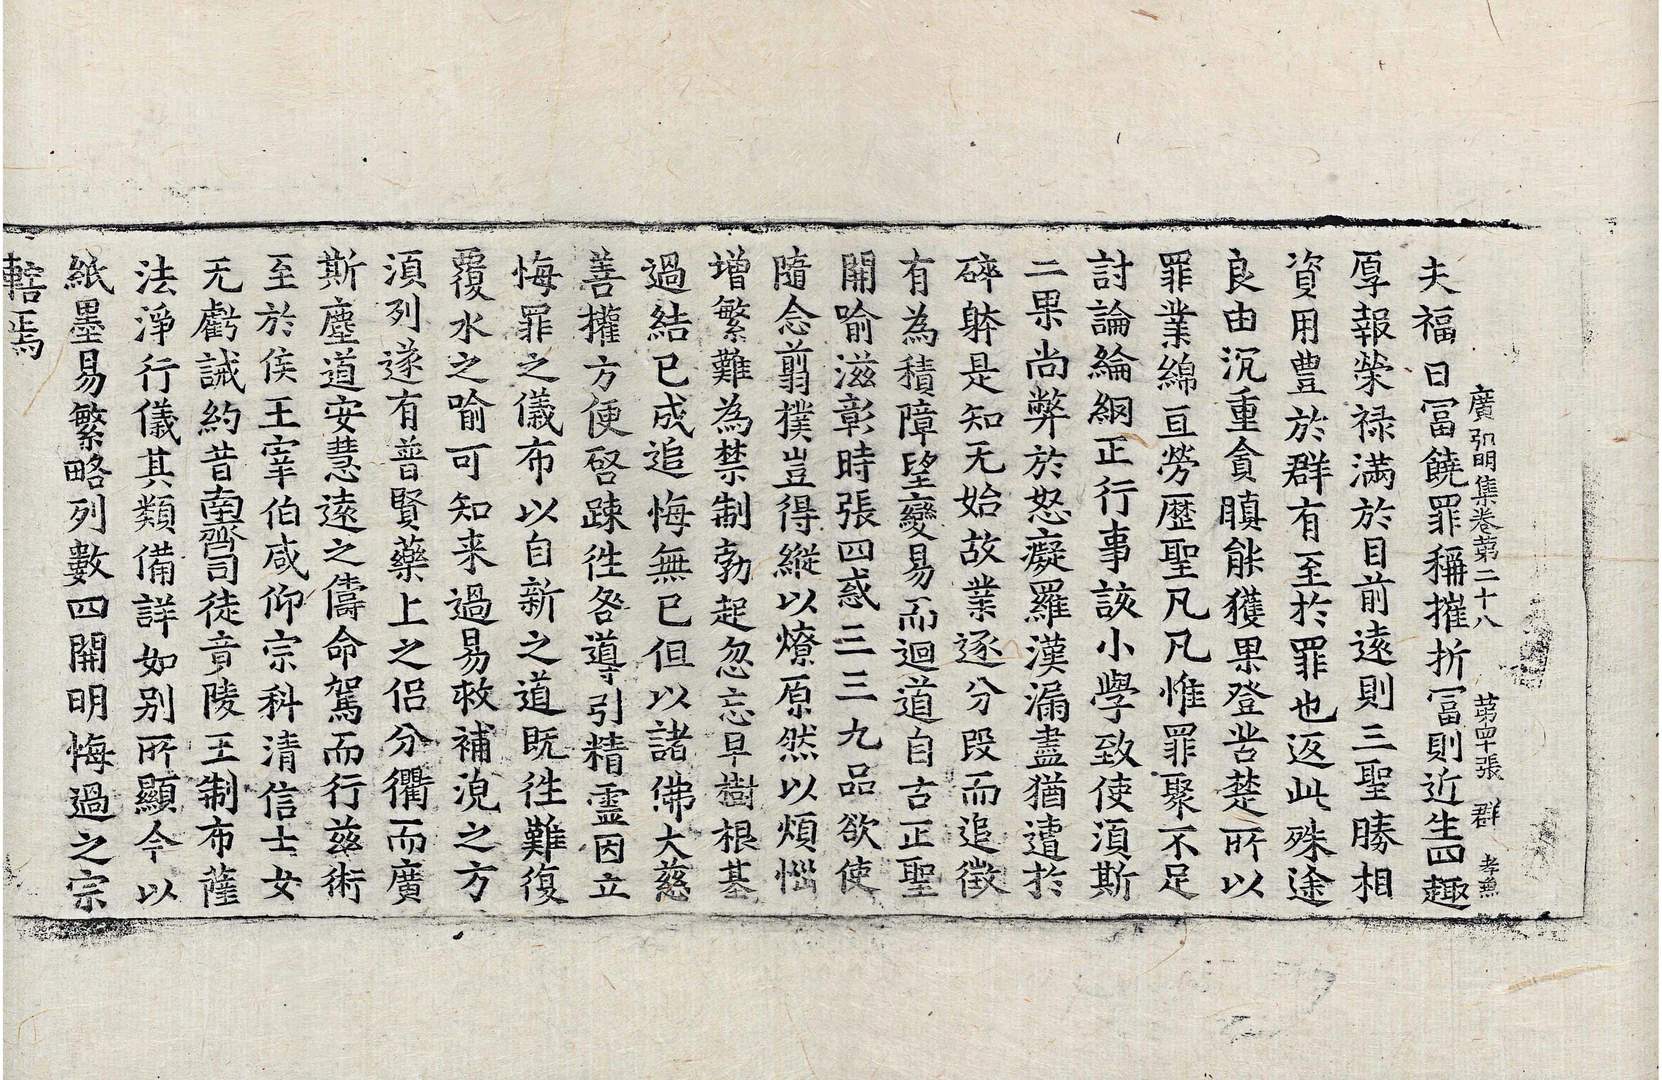 廣弘明集卷第二十八　第四十張　群　孝兼
夫福曰冨饒罪稱摧折冨則近生四趣
厚報榮禄滿於目前遠則三聖勝相
資用豊於群有至於罪也返此殊途
良由沉重貪瞋能獲果登苦楚所以
罪業綿亘勞歷聖凡凡惟罪聚不足
討論綸網正行事該小學致使湏斯
二果尚弊於怒癡羅漢漏盡猶遭於
碎躰是知无始故業逐分段而追徵
有為積障望變易而迴道自古正聖
開喻滋彰時張四惑三三九品欲使
隨念翦撲豈得縱以燎原然以煩惱
增繁難為禁制勃起忽忘早樹根基
過結已成追悔無已但以諸佛大慈
善權方便啓踈徃咎導引精霊因立
悔罪之儀布以自新之道既徃難復
覆水之喻可知来過易救補浣之方
湏列遂有普賢藥上之侣分衢而廣
斯塵道安慧遠之儔命駕而行兹術
至於侯王宰伯咸仰宗科清信士女
无虧誡約昔南齊司徒竟陵王制布薩
法淨行儀其類備詳如别所顯今以
紙墨易繁略列數四開明悔過之宗
轄焉